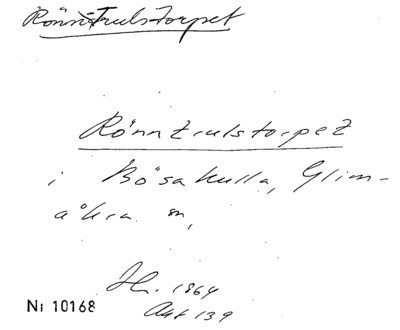 Rönn-Trulstorpet
Rönntrulstorpet
i Bösakulla, Glim-
åkra sn,
Hr. 1864
Akt 139
Nr 10168